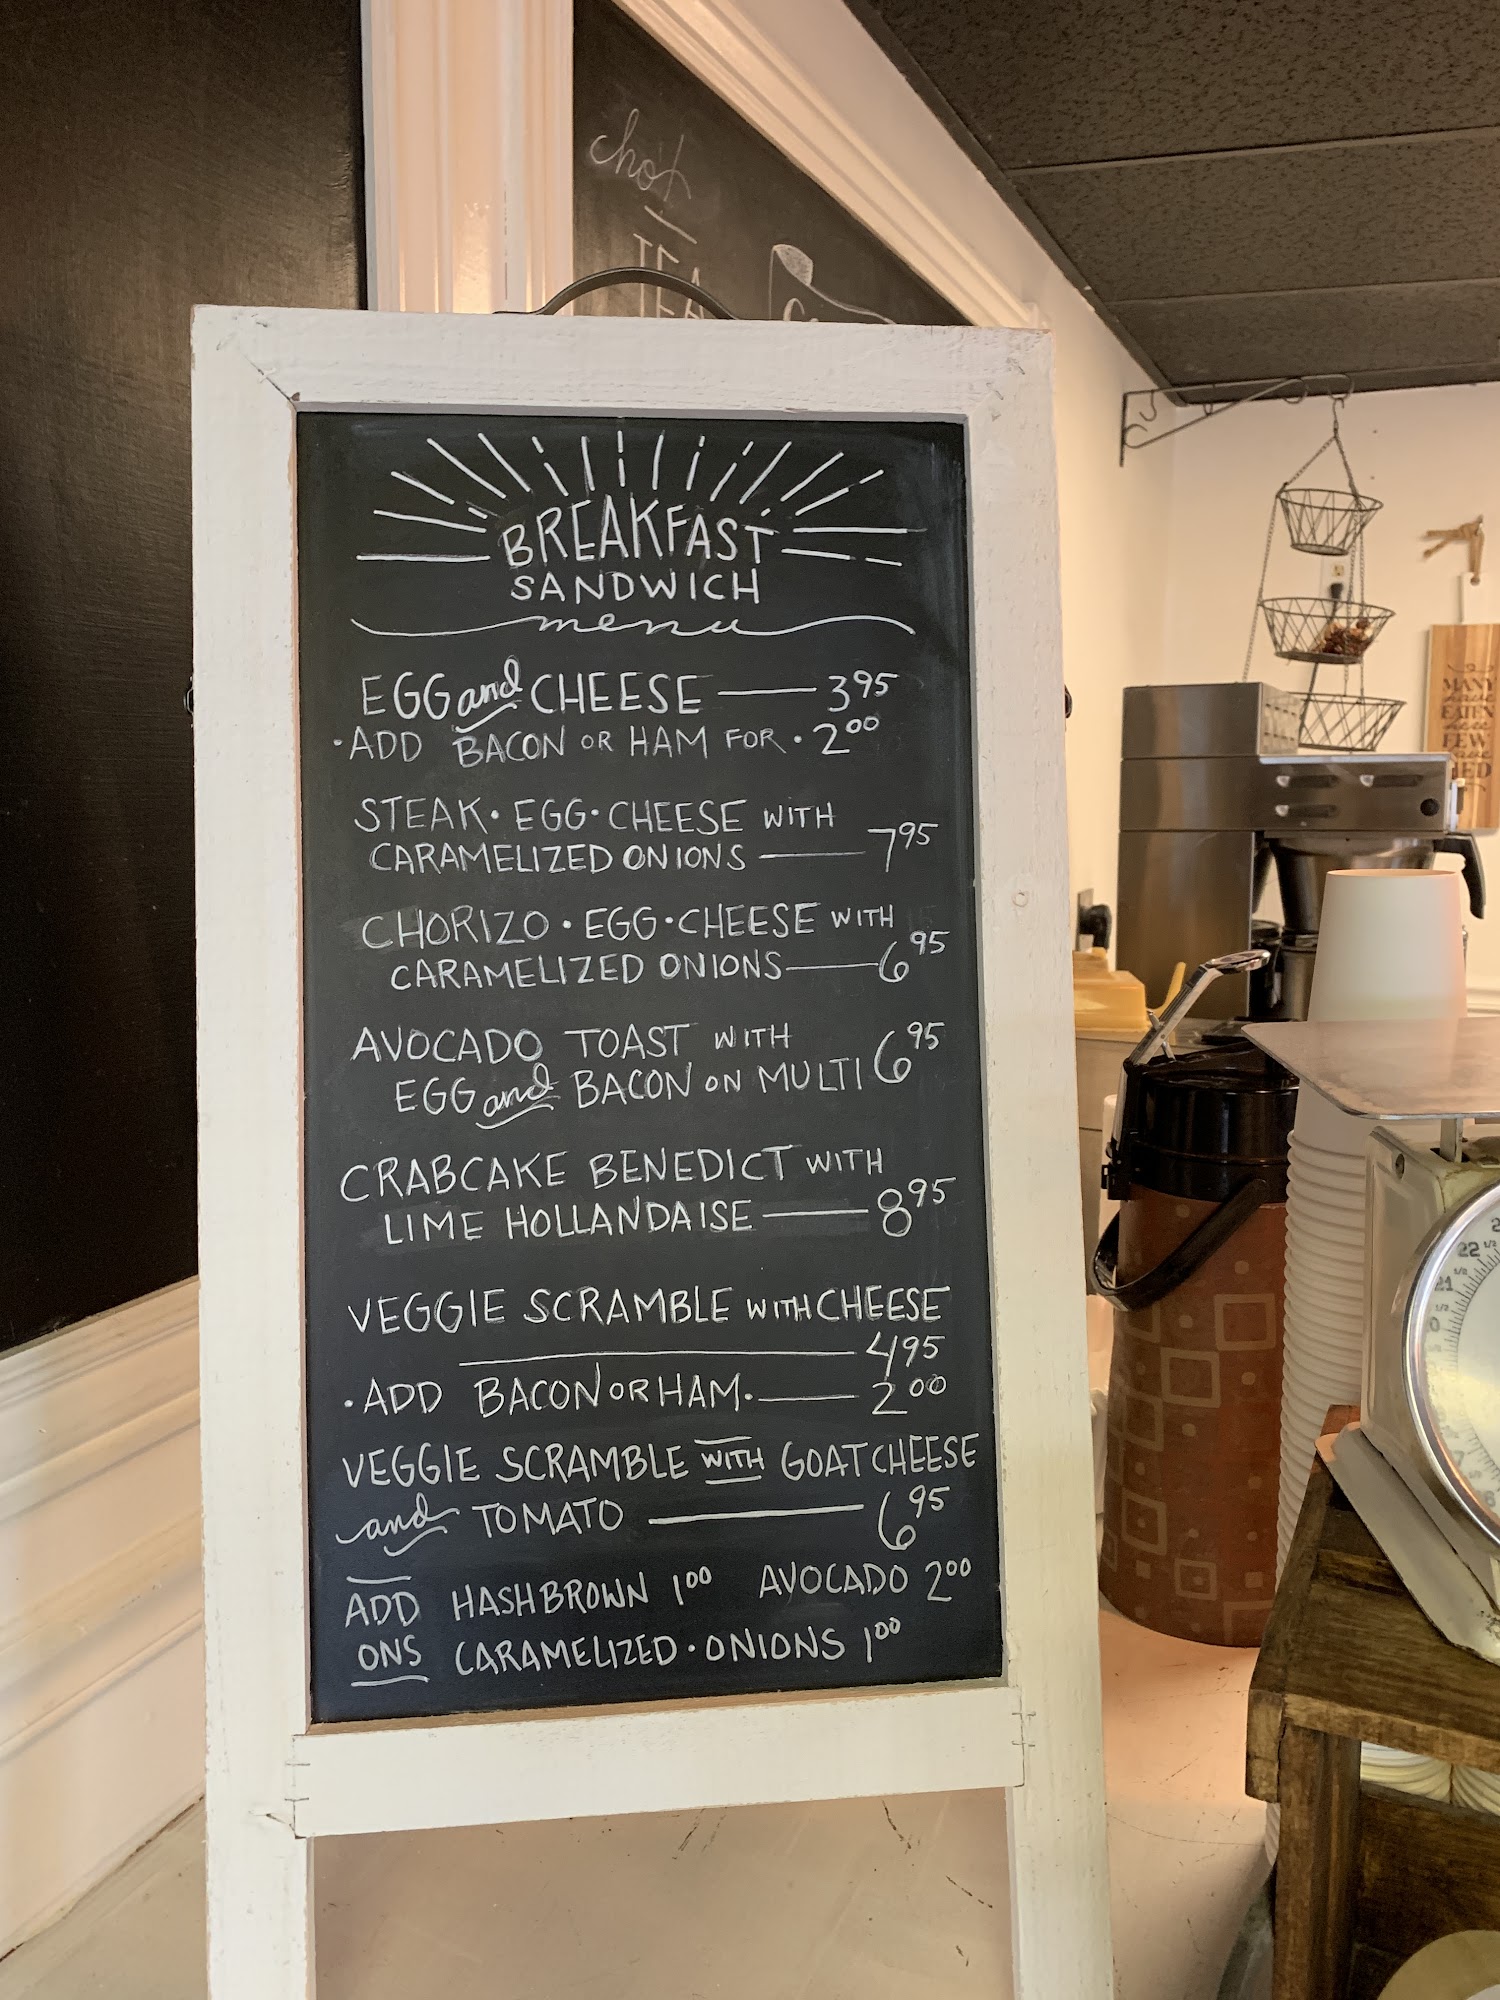 chot
TEA
BREAKFAST
SANDWICH
menu
EGG and CHEESE 3.95
·ADD BACON OR HAM FOR · 2.00
STEAK · EGG · CHEESE WITH
CARAMELIZED ONIONS 7.95
CHORIZO · EGG · CHEESE WITH
CARAMELIZED ONIONS 6.95
AVOCADO TOAST WITH
EGG and BACON ON MULTI 6.95
CRABCAKE BENEDICT WITH
LIME HOLLANDAISE 8.95
VEGGIE SCRAMBLE WITH CHEESE
4.95
·ADD BACON OR HAM. 2.00
VEGGIE SCRAMBLE WITH GOAT CHEESE
and TOMATO 6.95
ADD HASHBROWN 1.00 AVOCADO 2.00
ONS CARAMELIZED · ONIONS 1.00
MANY
have
EATEN
FEW
22